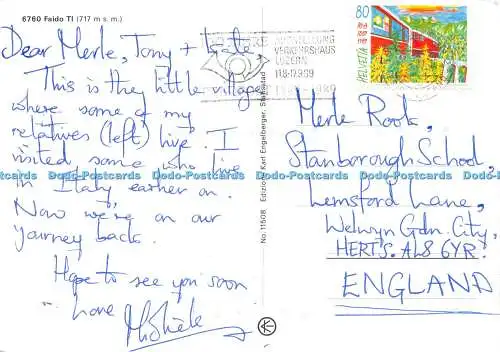 6760 Faido TI (717 m s. m.)
Dear Merle, Tony + Kate,
This is the little village
where some of my
relatives (left) live. I
visited some who live
in Italy earlier on.
Now we're on our
journey back.
Hope to see you soon
Love
No. 115018 Edizione Karl Engelberger, Stansstad
VERKEHRSHAUS
LUZERN
80
HELVETIA
Merle Rook,
Stanborough School,
Lemsford Lane,
Welwyn Gdn. City,
HERTS. AL8 6YR.
ENGLAND
Dodo-Postcards Dodo-Postcards Dodo-Postcards Dodo-Postcards